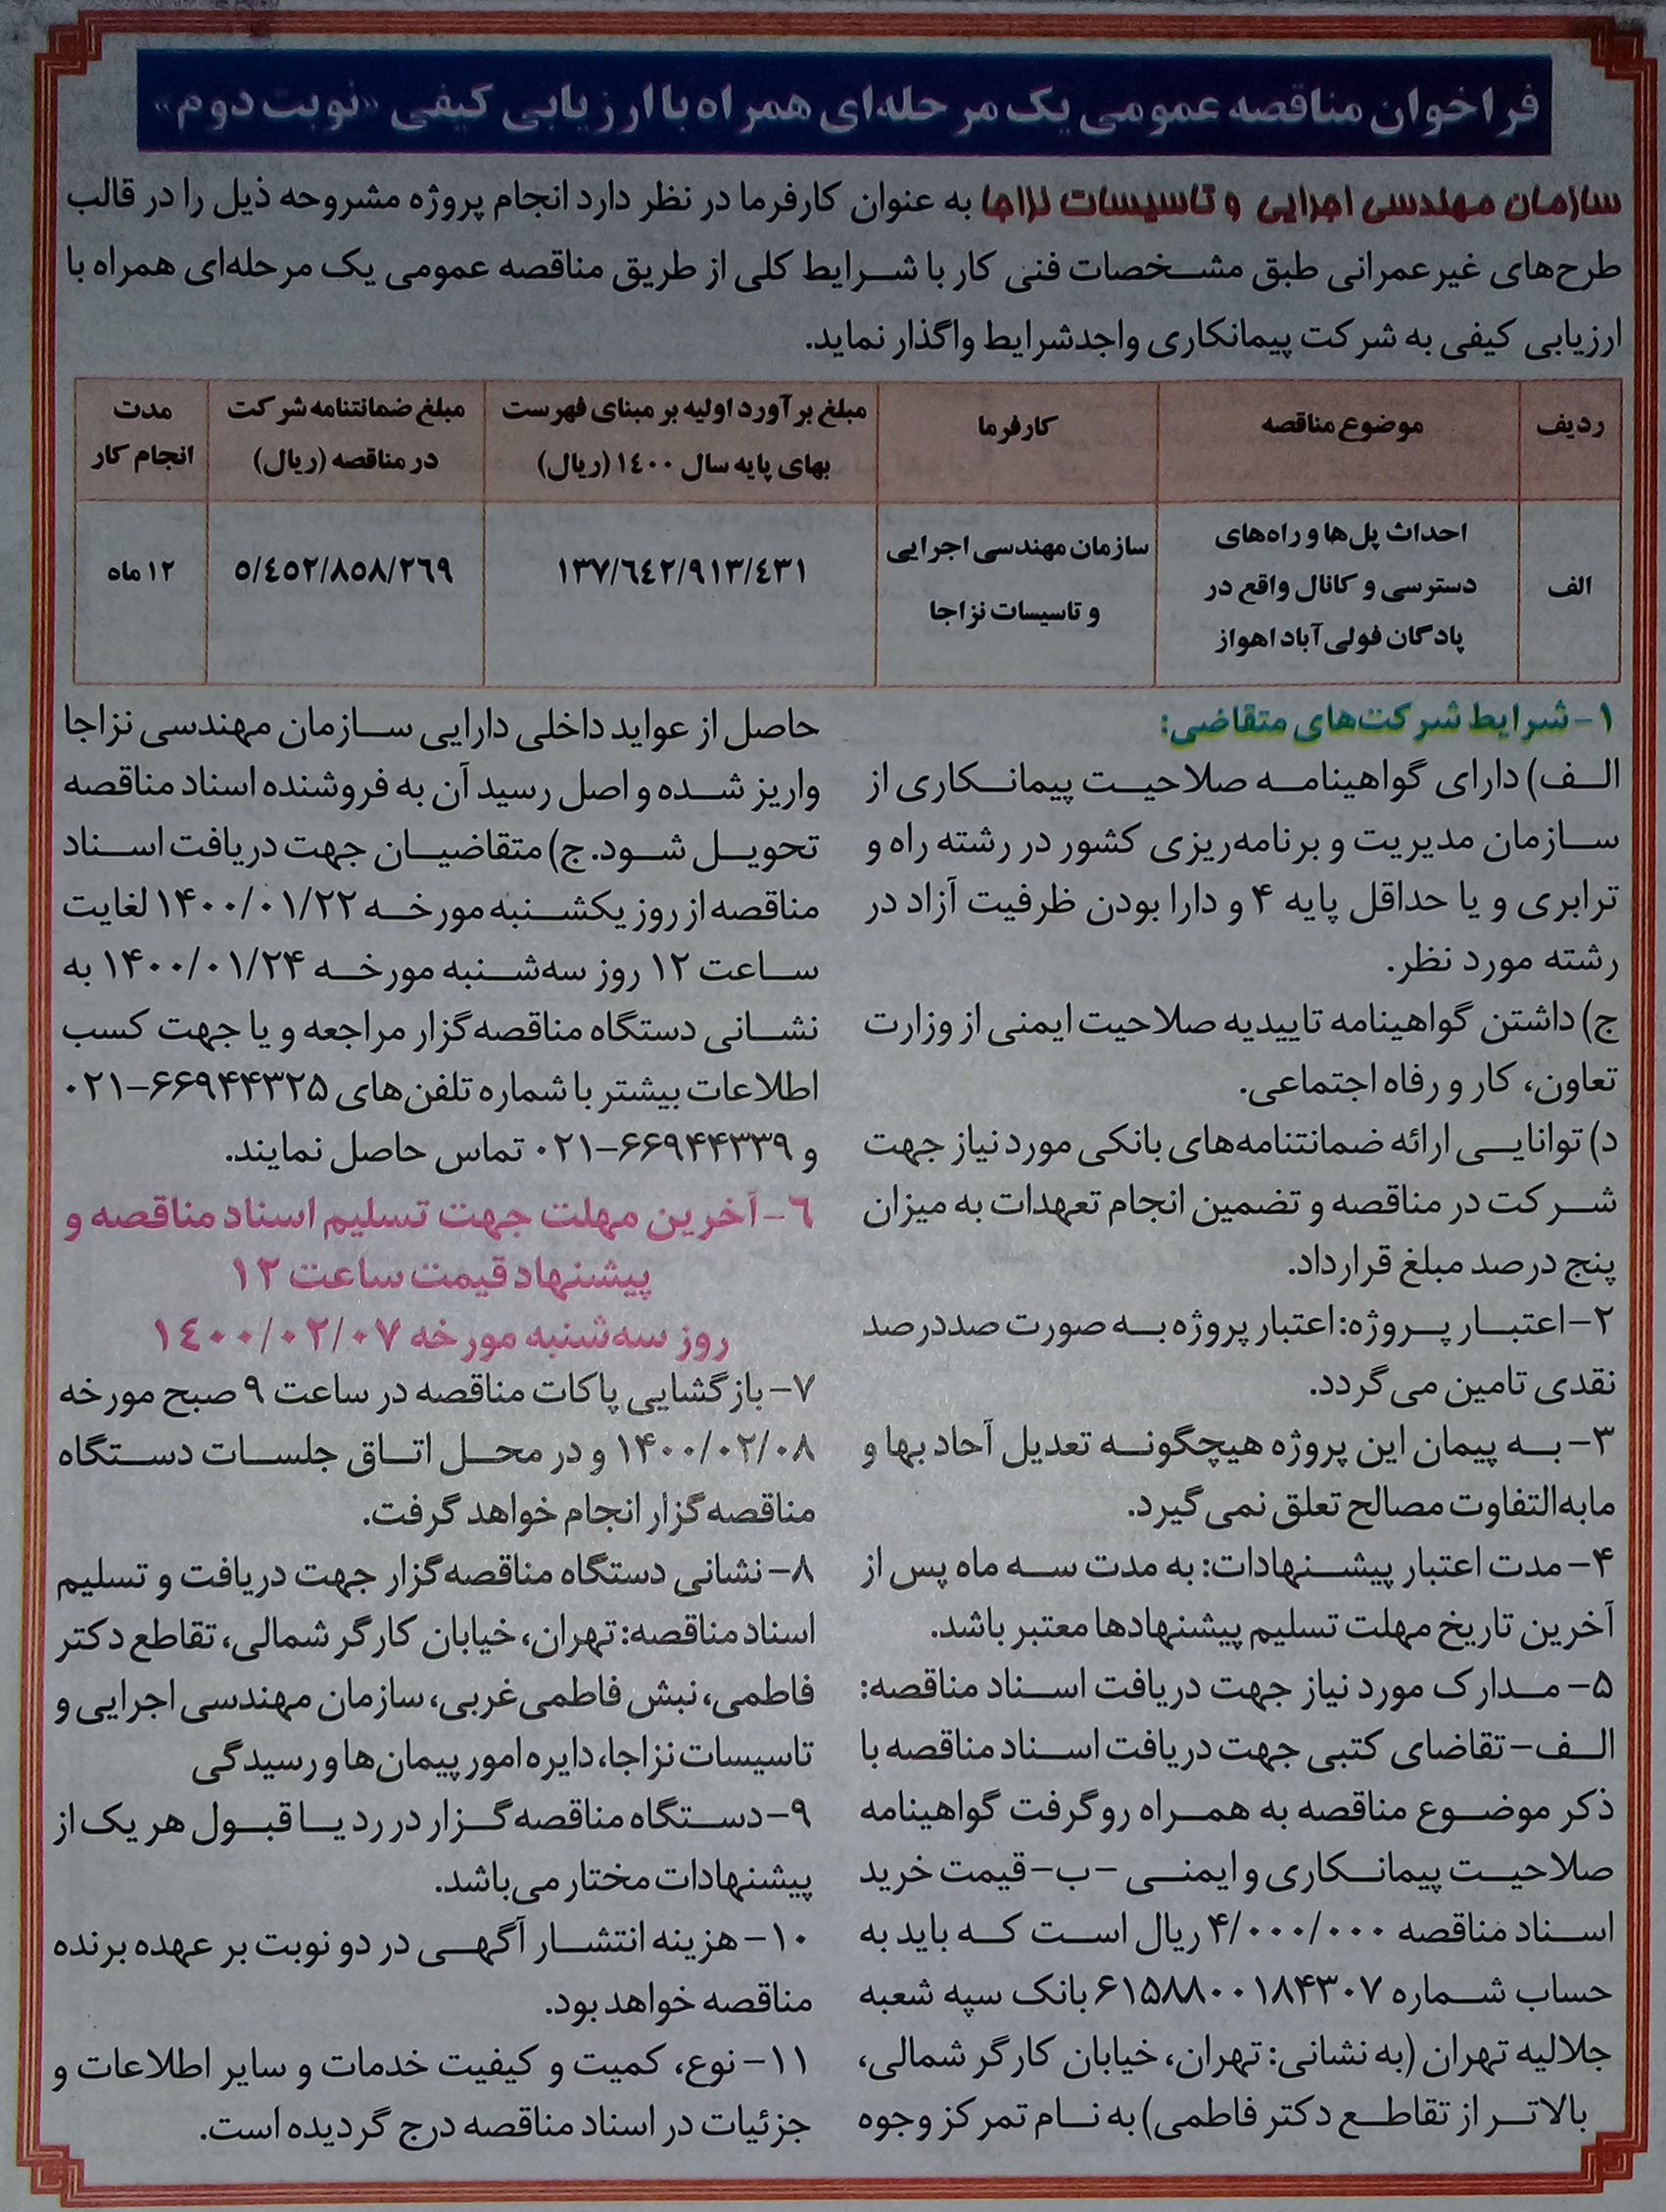 فراخوان مناقصه عمومی یک مرحله‌ای همراه با ارزیابی کیفی «نوبت دوم»
سازمان مهندسی اجرایی و تاسیسات نزاجا به عنوان کارفرما در نظر دارد انجام پروژه مشروحه ذیل را در قالب
طرح‌های غیرعمرانی طبق مشخصات فنی کار با شرایط کلی از طریق مناقصه عمومی یک مرحله‌ای همراه با
ارزیابی کیفی به شرکت پیمانکاری واجدشرایط واگذار نماید.
ردیف
موضوع مناقصه
کارفرما
مبلغ برآورد اولیه بر مبنای فهرست
بهای پایه سال ۱۴۰۰ (ریال)
مبلغ ضمانتنامه شرکت
در مناقصه (ریال)
مدت
انجام کار
الف
احداث پل‌ها و راه‌های
دسترسی و کانال واقع در
پادگان فولی‌آباد اهواز
سازمان مهندسی اجرایی
و تاسیسات نزاجا
۱۳۷/۶۴۲/۹۱۳/۴۳۱
۵/۴۵۲/۸۵۸/۲۶۹
۱۲ ماه
۱- شرایط شرکت‌های متقاضی:
الف) دارای گواهینامه صلاحیت پیمانکاری از
سازمان مدیریت و برنامه‌ریزی کشور در رشته راه و
ترابری و یا حداقل پایه ۴ و دارا بودن ظرفیت آزاد در
رشته مورد نظر.
ج) داشتن گواهینامه تاییدیه صلاحیت ایمنی از وزارت
تعاون، کار و رفاه اجتماعی.
د) توانایی ارائه ضمانتنامه‌های بانکی مورد نیاز جهت
شرکت در مناقصه و تضمین انجام تعهدات به میزان
پنج درصد مبلغ قرارداد.
۲- اعتبار پروژه: اعتبار پروژه به صورت صددرصد
نقدی تامین می‌گردد.
۳- به پیمان این پروژه هیچگونه تعدیل آحاد بها و
مابه‌التفاوت مصالح تعلق نمی‌گیرد.
۴- مدت اعتبار پیشنهادات: به مدت سه ماه پس از
آخرین تاریخ مهلت تسلیم پیشنهادها معتبر باشد.
۵- مدارک مورد نیاز جهت دریافت اسناد مناقصه:
الف- تقاضای کتبی جهت دریافت اسناد مناقصه با
ذکر موضوع مناقصه به همراه روگرفت گواهینامه
صلاحیت پیمانکاری و ایمنی -ب- قیمت خرید
اسناد مناقصه ۴/۰۰۰/۰۰۰ ریال است که باید به
حساب شماره ۶۱۵۸۸۰۰۱۸۴۳۰۷ بانک سپه شعبه
جلالیه تهران (به نشانی: تهران، خیابان کارگر شمالی،
بالاتر از تقاطع دکتر فاطمی) به نام تمرکز وجوه
حاصل از عواید داخلی دارایی سازمان مهندسی نزاجا
واریز شده و اصل رسید آن به فروشنده اسناد مناقصه
تحویل شود. ج) متقاضیان جهت دریافت اسناد
مناقصه از روز یکشنبه مورخه ۱۴۰۰/۰۱/۲۲ لغایت
ساعت ۱۲ روز سه‌شنبه مورخه ۱۴۰۰/۰۱/۲۴ به
نشانی دستگاه مناقصه‌گزار مراجعه و یا جهت کسب
اطلاعات بیشتر با شماره تلفن‌های ۶۶۹۴۴۳۲۵-۰۲۱
و ۶۶۹۴۴۳۳۹-۰۲۱ تماس حاصل نمایند.
۶- آخرین مهلت جهت تسلیم اسناد مناقصه و
پیشنهاد قیمت ساعت ۱۲
روز سه‌شنبه مورخه ۱۴۰۰/۰۲/۰۷
۷- بازگشایی پاکات مناقصه در ساعت ۹ صبح مورخه
۱۴۰۰/۰۲/۰۸ و در محل اتاق جلسات دستگاه
مناقصه‌گزار انجام خواهد گرفت.
۸- نشانی دستگاه مناقصه‌گزار جهت دریافت و تسلیم
اسناد مناقصه: تهران، خیابان کارگر شمالی، تقاطع دکتر
فاطمی، نبش فاطمی‌غربی، سازمان مهندسی اجرایی و
تاسیسات نزاجا، دایره امور پیمان‌ها و رسیدگی
۹- دستگاه مناقصه‌گزار در رد یا قبول هر یک از
پیشنهادات مختار می‌باشد.
۱۰- هزینه انتشار آگهی در دو نوبت بر عهده برنده
مناقصه خواهد بود.
۱۱- نوع، کمیت و کیفیت خدمات و سایر اطلاعات و
جزئیات در اسناد مناقصه درج گردیده است.